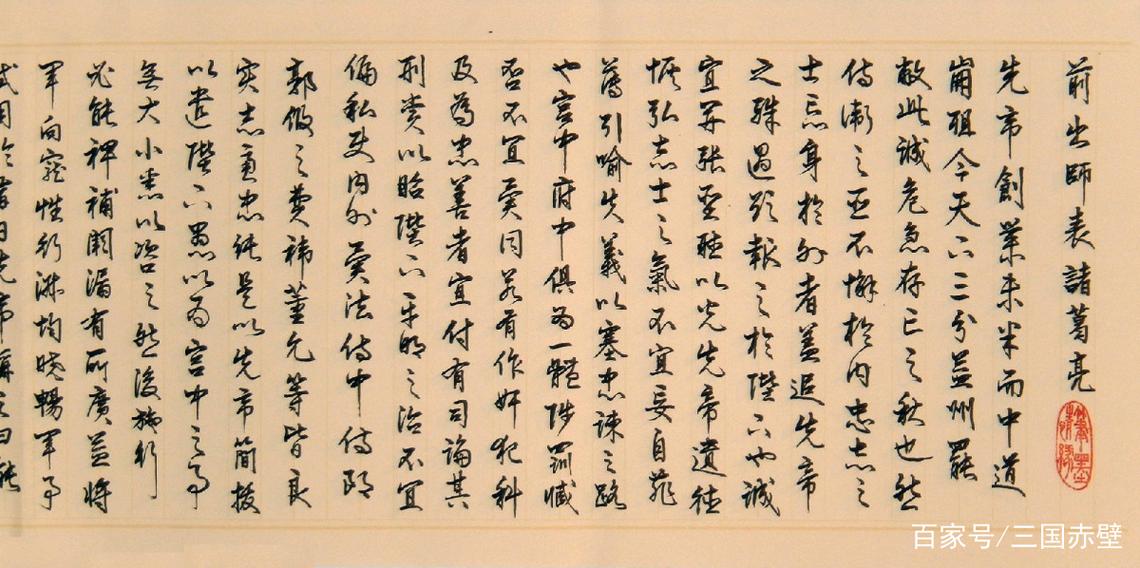 前出師表諸葛亮
先帝創業未半而中道
崩殂今天下三分益州罷
敝此誠危急存亡之秋也然
侍衛之臣不懈於內忠志之
士忘身於外者蓋追先帝
之殊遇欲報之於陛下也誠
宜開張聖聽以光先帝遺德
恢弘志士之氣不宜妄自菲
薄引喻失義以塞忠諫之路
也宮中府中俱為一體陟罰臧
否不宜異同若有作奸犯科
及為忠善者宜付有司論其
刑賞以昭陛下平明之治不宜
偏私使內外異法侍中侍郎
郭攸之費禕董允等皆良
實志慮忠純是以先帝簡拔
以遺陛下愚以為宮中之事
無大小悉以咨之然後施行
必能裨補闕漏有所廣益將
軍向寵性行淑均曉暢軍事
試用於昔日先帝稱之曰能
百家号/三国赤壁